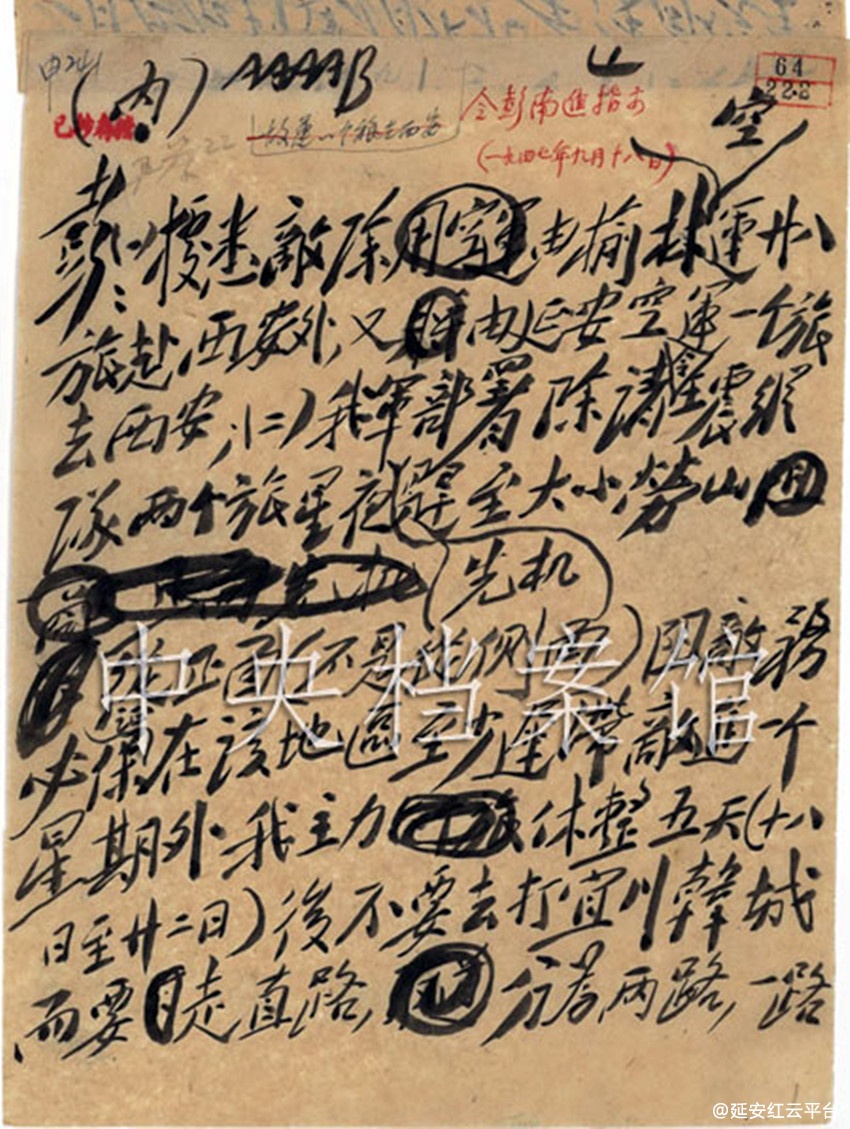 申巧
(内) AAAAB
64
222
已抄存档
放遵一个旅去西安
令彭南进指示
(一九四七年九月十八日)
空
彭:(一)据悉敌除用空运由榆林运廿八
旅赴西安外,又由延安空运一个旅
去西安,(二)我军部署除请令震纵
队两个旅星夜赶至大小劳山
先机
正面(不是侧面)阻敌务
必保在该地区至少迟滞敌进一个
星期外,我主力休整五天(十八
日至廿二日)后不要去打宜川韩城
而要走直路,分为两路,一路
中央档案馆
@延安红云平台